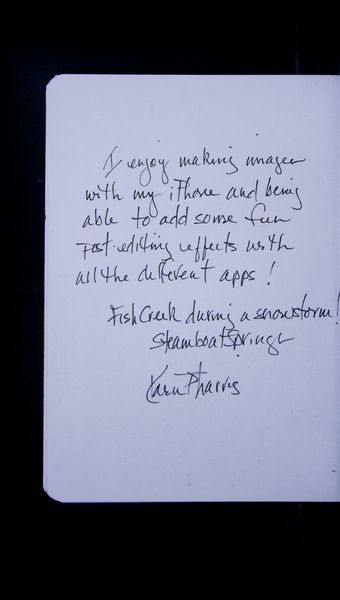 I enjoy making images
with my iPhone and being
able to add some fun
Post-editing effects with
all the different apps!
Fish Creek during a snowstorm!
Steamboat Springs
Karen Pharris